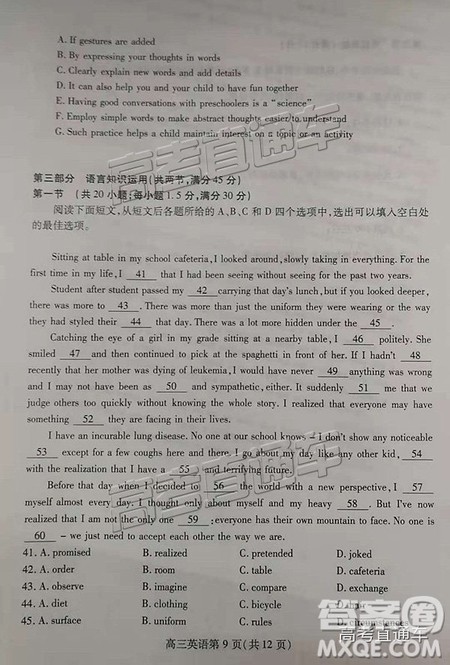 A. If gestures are added
B. By expressing your thoughts in words
C. Clearly explain new words and add details
D. It can also help you and your child to have fun together
E. Having good conversations with preschoolers is a "science"
F. Employ simple words to make abstract thoughts easier to understand
G. Such practice helps a child maintain interest on a topic or an activity
第三部分 语言知识运用(共两节,满分45分)
第一节 (共20小题;每小题1.5分,满分30分)
阅读下面短文,从短文后各题所给的A、B、C和D四个选项中,选出可以填入空白处
的最佳选项。
Sitting at table in my school cafeteria, I looked around, slowly taking in everything. For the
first time in my life, I 41 that I had been seeing without seeing for the past two years.
Student after student passed my 42 carrying that day's lunch, but if you looked deeper,
there was more to 43 . There was more than just the uniform they were wearing or the way
they had styled their 44 that day. There was a lot more hidden under the 45 .
Catching the eye of a girl in my grade sitting at a nearby table, I 46 politely. She
smiled 47 and then continued to pick at the spaghetti in front of her. If I hadn't 48
recently that her mother was dying of leukemia, I would have never 49 anything was wrong
and I may not have been as 50 and sympathetic, either. It suddenly 51 me that we as
humans can be quick to assume without knowing the whole story. I realized that everyone may have
something 52 they are facing in their lives.
I have an incurable lung disease. No one at our school knows – I don't show any noticeable
53 except for a few coughs here and there. I go about my day like any other kid, 54
with the realization that I have a 55 and terrifying future.
Before that day when I decided to 56 the world with a new perspective, I 57
myself almost every day. I thought only about myself and my heavy 58 . But I've now
realized that I am not the only one 59 ; everyone has their own mountain to face. No one is
60 – we just need to accept each other the way we are.
41. A. promised B. realized C. pretended D. joked
42. A. order B. room C. table D. cafeteria
43. A. observe B. imagine C. compare D. exchange
44. A. diet B. clothing C. hair D. life
45. A. surface B. uniform C. disguise D. circumstances
高三英语第9页(共12页)
高考直通车
答案圈
高考直通车
MXQE.COM